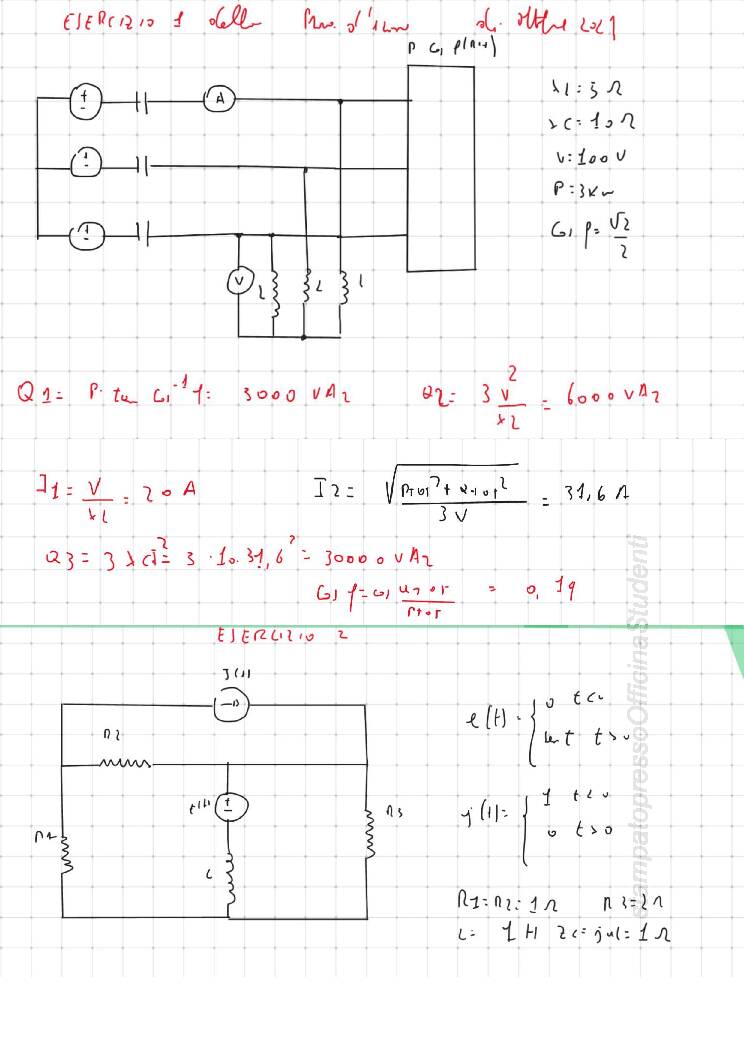 ESERCIZIO 1 della di ottbre 2021
P cos φ (RIT)
A
XL = 5 Ω
XC = 10 Ω
V = 100 V
P = 3 KW
cos φ = √2/2
V L L L
Q1 = P · tan cos⁻¹ φ = 3000 VAR Q2 = 3 V²/XL = 6000 VAR
I1 = V/XL = 20 A I2 = √(PTOT² + QTOT²)/3V = 31,6 A
Q3 = 3 XC I² = 3 · 10 · 31,6² = 30000 VAR
cos φ = cos QTOT/PTOT = 0,19
ESERCIZIO 2
J(t)
R2
e(t) = { 0 t<0
sen t t>0
e(t)
R1
L
R3
j(t) = { 1 t<0
0 t>0
R1 = R2 = 1 Ω R3 = 2 Ω
L = 1 H ZL = jωL = 1 Ω
stampatopressoOfficinaStudenti